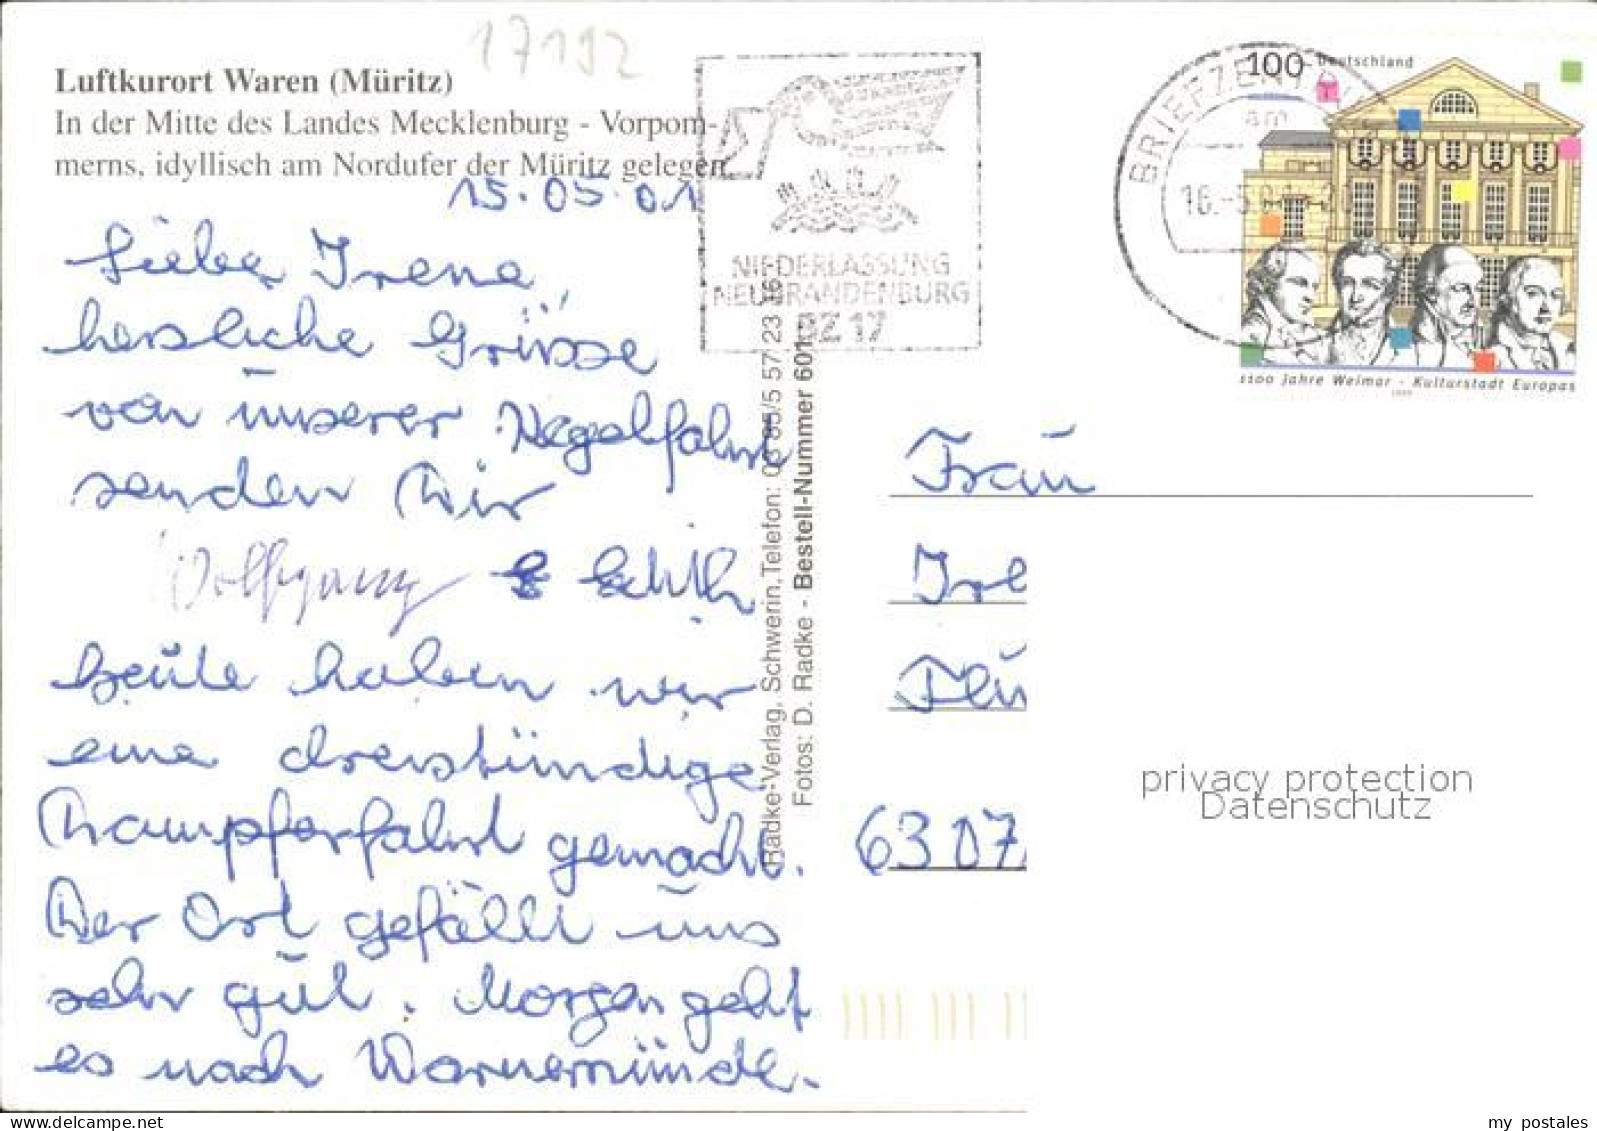 17192
Luftkurort Waren (Müritz)
In der Mitte des Landes Mecklenburg - Vorpom-
merns, idyllisch am Nordufer der Müritz gelegen.
15.05.01
Liebe Irene,
herzliche Grüsse
von unserer Kegelfahrt
senden wir
Wolfgang & Edith
Heute haben wir
eine dreistündige
Dampferfahrt gemacht.
Der Ort gefällt uns
sehr gut. Morgen geht
es nach Warnemünde.
NIEDERLASSUNG
NEUBRANDENBURG
BZ 17
Radke-Verlag, Schwerin, Telefon: 03 85/5 57 23 16
Fotos: D. Radke - Bestell-Nummer 601
BRIEFZENT
am
16.-5.01
100 Deutschland
1100 Jahre Weimar - Kulturstadt Europas
1999
Frau
Ire
Flu
6307
privacy protection
Datenschutz
my postales